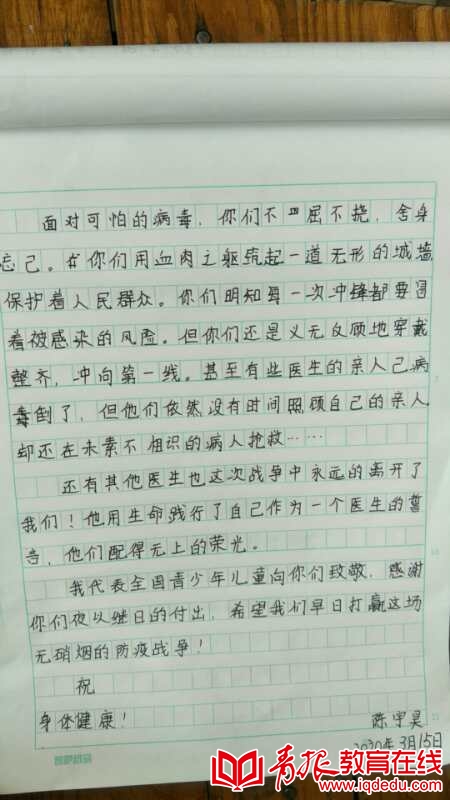 面对可怕的病毒,你们不屈不挠,舍身
忘己。你们用血肉之躯筑起一道无形的城墙
保护着人民群众。你们明知每一次冲锋都要冒
着被感染的风险。但你们还是义无反顾地穿戴
整齐,冲向第一线。甚至有些医生的亲人已病
毒倒了,但他们依然没有时间照顾自己的亲人
却还在未素不相识的病人抢救……
还有其他医生也这次战争中永远的离开了
我们!他用生命践行了自己作为一个医生的誓
言,他们配得无上的荣光。
我代表全国青少年儿童向你们致敬,感谢
你们夜以继日的付出,希望我们早日打赢这场
无硝烟的防疫战争!
祝
身体健康!
陈宇昊
2020年3月15日
青报教育在线
www.iqdedu.com